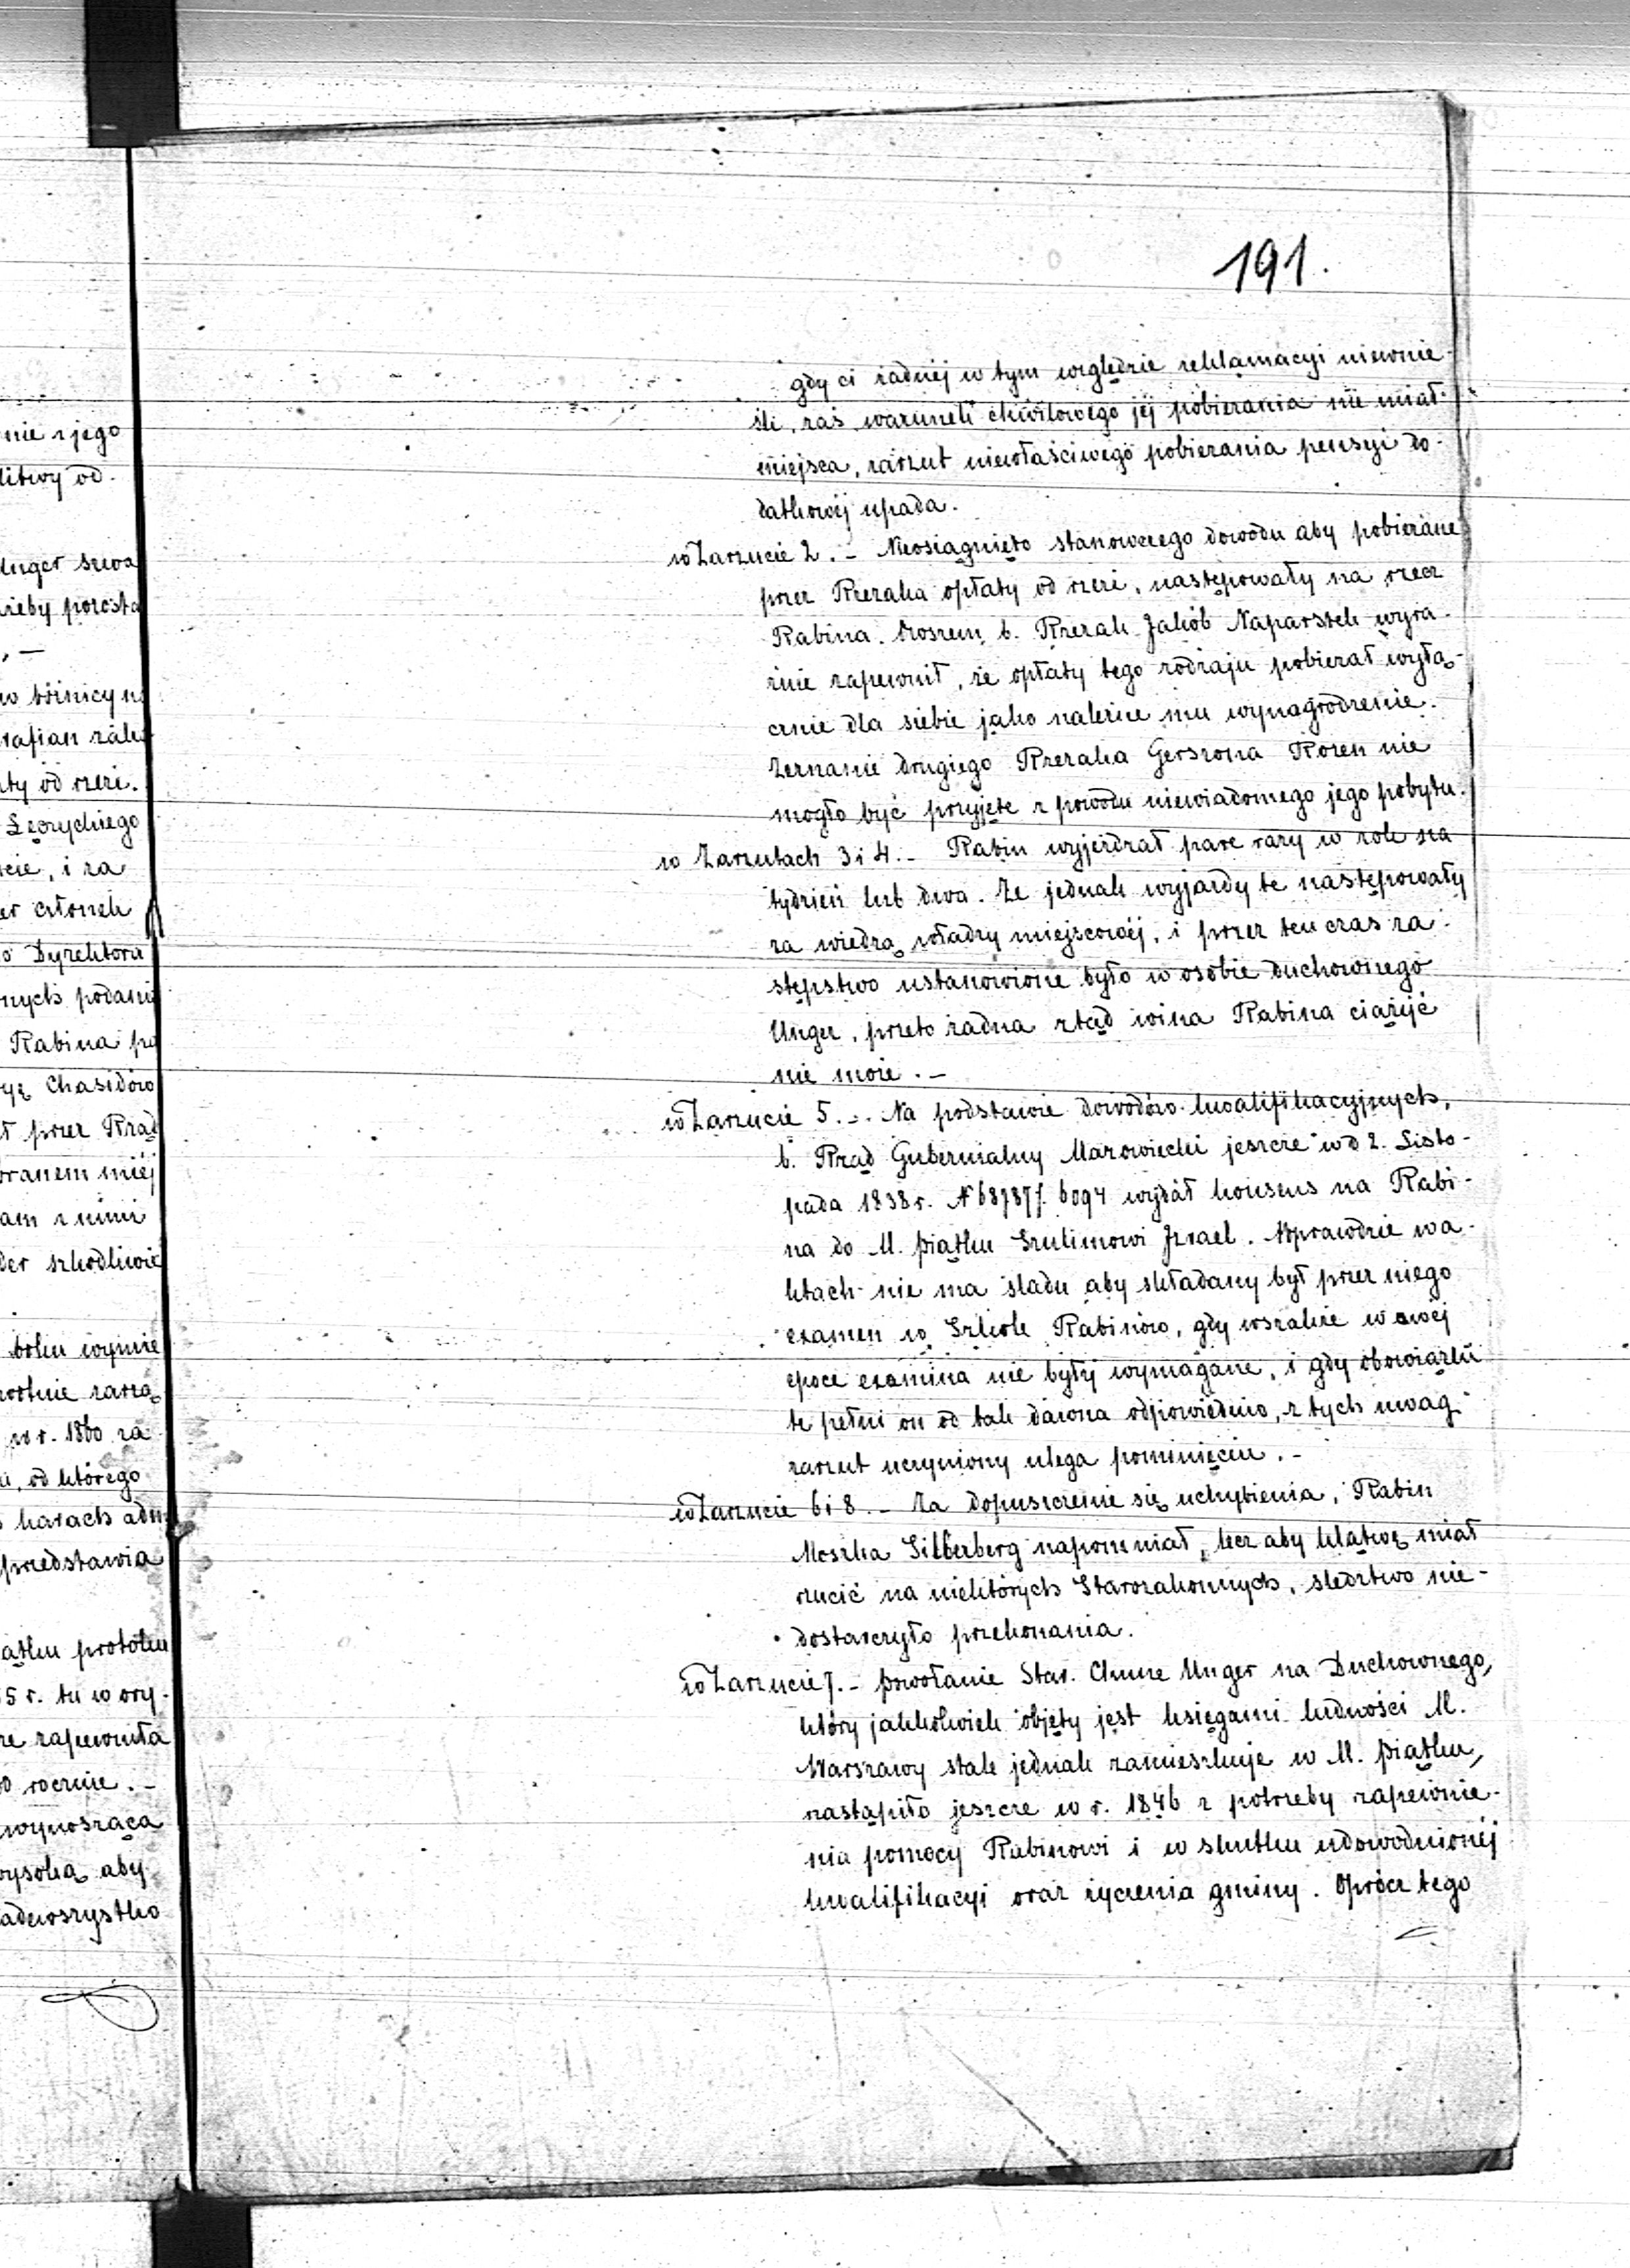 191.
gdy ci żadnéj w tym względzie reklamacyi niewnie-
śli, zaś warunek chwilowego jéj pobierania nie miał
miejsca, zarzut niewłaściwego pobierania pensyi do-
datkowéj upada.
w Zarzucie 2. – Nieosiągnięto stanowczego dowodu aby pobierane
przez Rzezaka opłaty od rzezi, następowały na rzecz
Rabina. b. Rzezak Jakób Naparstek wyra-
źnie zapewnił, że opłaty tego rodzaju pobierał wyłą-
cznie dla siebie jako należne mu wynagrodzenie.
Zeznanie drugiego Rzezaka Gerszona Rozen nie
mogło być przyjęte z powodu niewiadomego jego pobytu.
w Zarzutach 3 i 4. – Rabin wyjeżdzał parę razy w rok na
tydzień lub dwa. Że jednak wyjazdy te następowały
za wiedzą władzy miejscowéj, i przez ten czas za-
stępstwo ustanowione było w osobie duchownego
Unger, przeto żadna ztąd wina Rabina ciążyć
nie może. –
w Zarzucie 5. – Na podstawie dowodów kwalifikacyjnych,
b. Rząd Gubernialny Mazowiecki jeszcze w d 2. Listo-
pada 1838 r. N 68787/6094 wydał konsens na Rabi-
na do M. Piątku Szulimowi Izrael. Wprawdzie w a-
ktach nie ma śladu aby składany był przez niego
examen w Szkole Rabinów, gdy wszakże w owéj
epoce examina nie były wymagane, i gdy obowiązki
te pełni on od tak dawna odpowiednio, z tych uwag
zarzut uczyniony ulega pominięciu. –
w Zarzucie 6 i 8. – Za dopuszczenie się uchybienia, Rabin
Moszka Silberberg napomniał, lecz aby klątwę miał
rzucić na niektórych Starozakonnych, śledztwo nie-
dostarczyło przekonania.
w Zarzucie 7. – Powołanie Star. Chune Unger na Duchownego,
który jakkolwiek objęty jest księgami ludności M.
Warszawy stale jednak zamieszkuje w M. Piątku,
nastąpiło jeszcze w r. 1846 z potrzeby zapewnie-
nia pomocy Rabinowi i w skutku udowodnionéj
kwalifikacyi oraz życzenia gminy. Oprócz tego